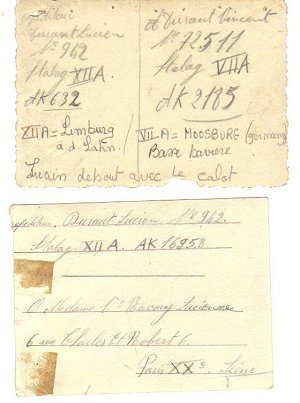 Durant Lucien
N° 942
Stalag XIIA.
AK 632
Durant Vincent
N° 72511
Stalag VIIA
AK 2185
XIIA = Limburg
a.d. Lahn.
VIIA = MOOSBURG (germany)
Basse bavière
Lucien debout avec le calot
Durant Lucien. N° 942.
Stalag XIIA. AK 16958
Madame Lucienne
6 rue Charles et Robert 6.
Paris XX°.